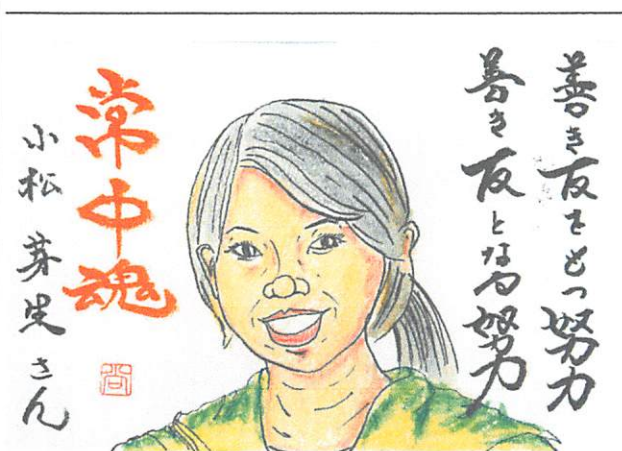 善き友をもつ努力
善き友となる努力
常中魂
小松 芽生 さん
尚